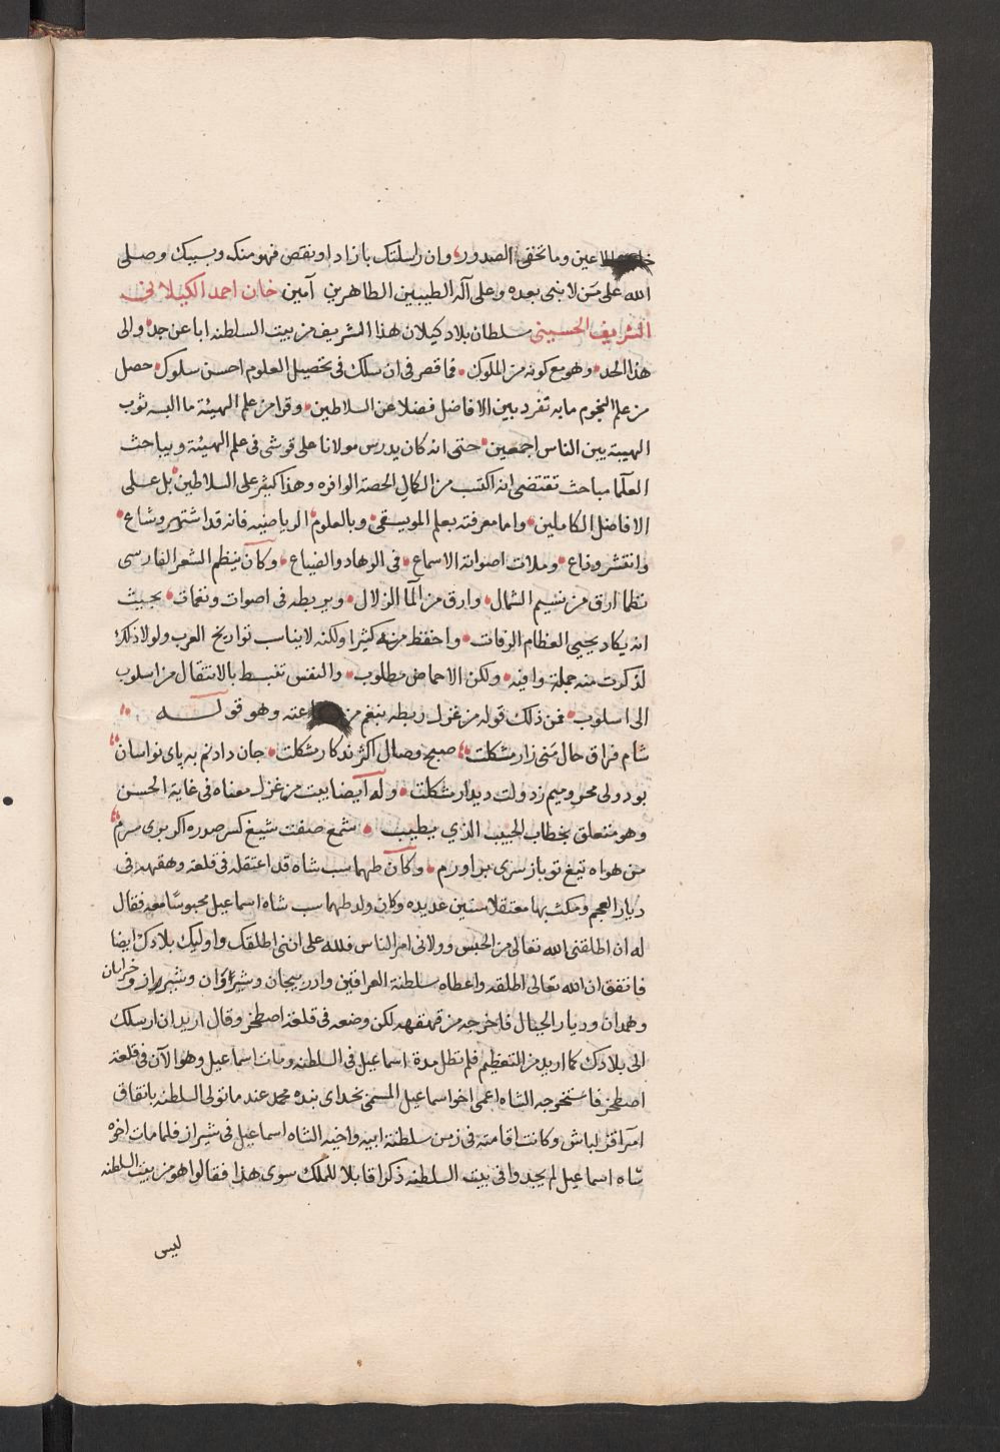 الاعين وما تخفى الصدور، وان راسلتك بازاد او نقص فهو منك وبسببك وصلى
الله على من لا نبى بعده وعلى آله الطيبين الطاهرين آمين خان احمد الكيلانى
الشريف الحسينى سلطان بلاد كيلان هذا الشريف من بيت السلطنه ابا عن جد والى
هذا الحد وهو مع كونه من الملوك فما قصر فى ان سلك فى تحصيل العلوم احسن سلوك حصل
من علم النجوم ما به تفرد بين الافاضل فضلا عن السلاطين وقوا من علم الهيئة ما البسه ثوب
الهيبة بين الناس اجمعين حتى انه كان يدرس مولانا على قوشى فى علم الهيئة ويباحث
العلما مباحث تقتضى انه اكتسب من الكمال الحصة الوافره وهذا كثير على السلاطين بل على
الافاضل الكاملين واما معرفته بعلم الموسيقى وبالعلوم الرياضيه فانه قد اشتهر وشاع
وانتشر وذاع وملات اصواته الاسماع فى الوهاد والضياع وكان ينظم الشعر الفارسى
نظما ارق من نسيم الشمال وارق من الما الزلال ويربطه فى اصوات ونغمات بحيث
انه يكاد يحيى العظام الرفات واحفظ منه كثيرا ولكنه لا يناسب تواريخ العرب ولولا ذلك
لذكرت منه جملة وافيه ولكن الاحماض مطلوب والنفس تغبسط بالانتقال من اسلوب
الى اسلوب فمن ذلك قوله من غزل ربطه بنغم من وهو قوله
شام فراق حال منى زار مشكلت صبح وصال اكثر ند كار مشكلت جان دادنم به پاى تو اسان
بود ولى محروميم ز دولت ديدار مشكلت وله ايضا بيت من غزل معناه فى غاية الحسن
وهو متعلق بخطاب الحبيب الذي يطيب شمع صفت شيغ كر صدره اكر برى سرم
من هواه تيغ تو باز سرى بر اورم وكان طهماسب شاه قد اعتقله فى قلعة وهقهه فى
ديار العجم ومكث بها معتقلا سنين عديده وكان ولد طهماسب شاه اسماعيل محبوسا معه فقال
له ان اطلقنى الله تعالى من الحبس وولانى امر الناس فلله على اننى اطلقك واوليك بلادك ايضا
فاتفق ان الله تعالى اطلقه واعطاه سلطنة العراقين وادربيجان وشروان وشيراز وخراسان
وهمدان وديار الجبال فاخرجه من قهقهه لكن وضعه فى قلعة اصطخر وقال اريد ان ارسلك
الى بلادك كما اريد من التعظيم فلم تطل مدة اسماعيل فى السلطنه ومات اسماعيل وهو الآن فى قلعة
اصطخر فاستخرجه الشاه اعمى اخو اسماعيل المسمى بخداى بنده محمد عند ما تولى السلطنه باتفاق
امرآ قزلباش وكانت اقامته فى زمن سلطنة ابيه واخيه الشاه اسماعيل فى شيراز فلما مات اخوه
شاه اسماعيل لم يجدوا فى بيت السلطنه ذكرا قابلا للملك سوى هذا فقالوا هو من بيت السلطنه
ليس